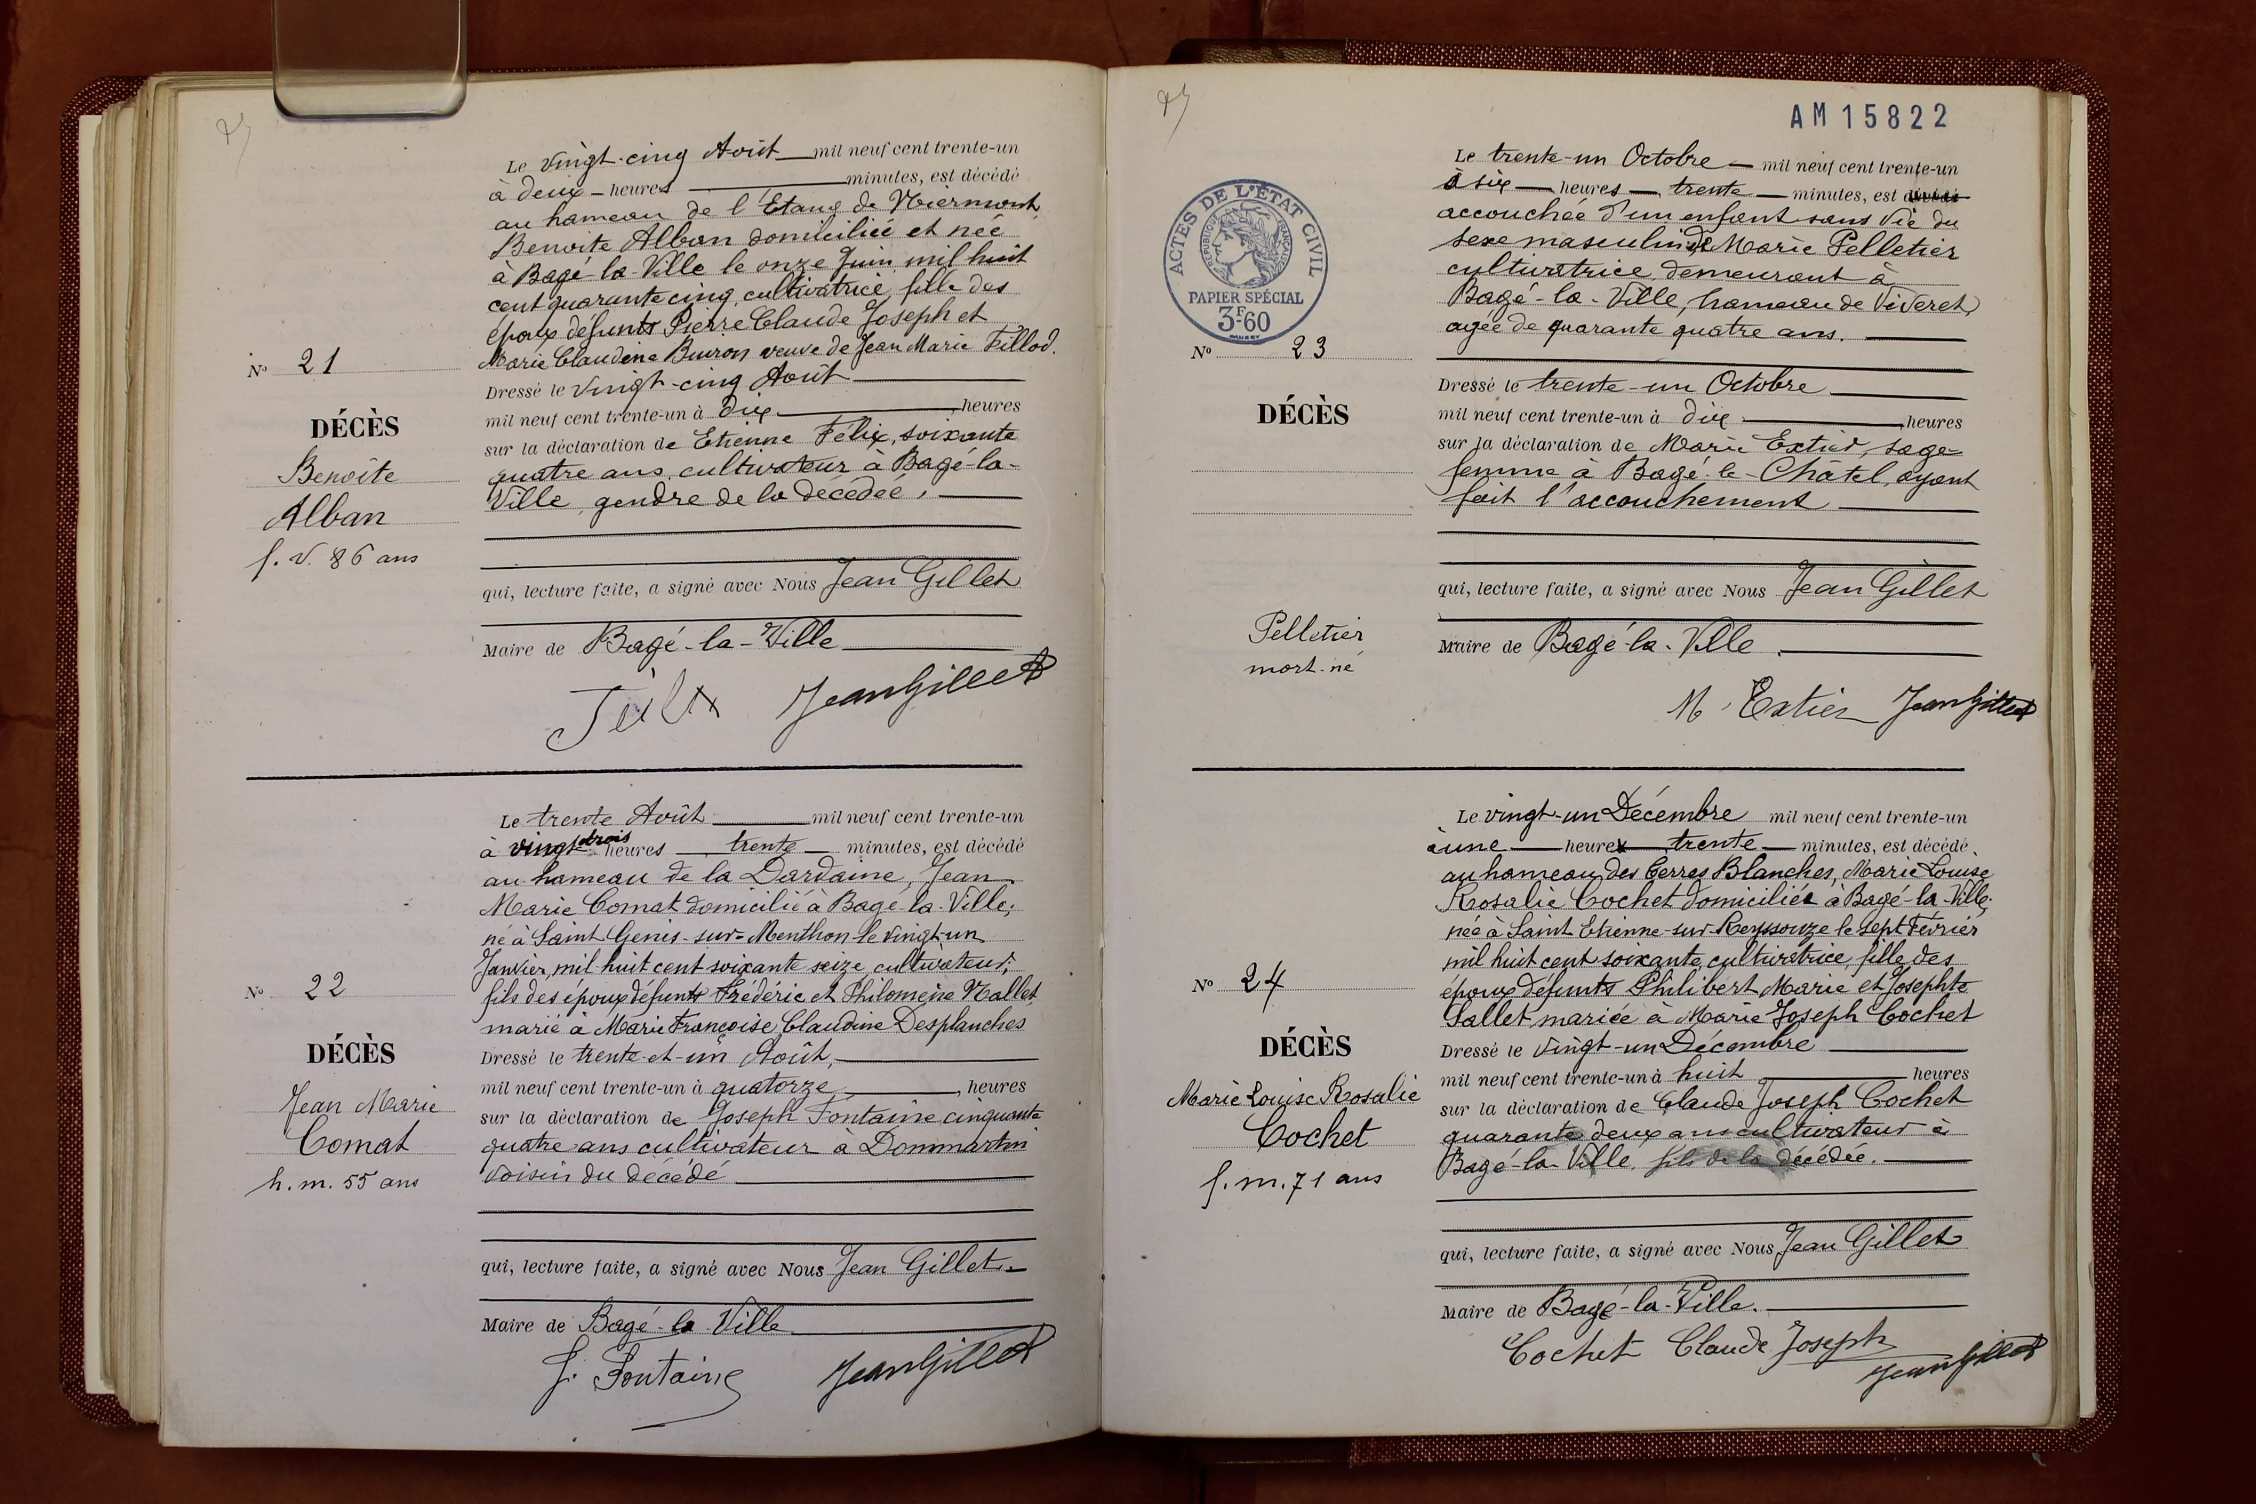 Le vingt-cinq Août mil neuf cent trente-un
à deux heures minutes, est décédé
au hameau de l'Etang de
Benoite Alban domiciliée et née
à Bagé-la-Ville le onze Juin mil huit
cent quarante cinq, cultivatrice, fille des
époux défunts Pierre Claude Joseph et
Marie Claudine Buiron veuve de Jean Marie Fillod.
No 21
Dressé le vingt-cinq Août
mil neuf cent trente-un à dix heures
DÉCÈS
sur la déclaration de Etienne Félix, soixante
Benoîte
quatre ans, cultivateur à Bagé-la-
Ville, gendre de la décédée,
Alban
f. v. 86 ans
qui, lecture faite, a signé avec Nous Jean Gillet
Maire de Bagé-la-Ville
Félix JeanGillet
Le trente Août mil neuf cent trente-un
à vingt trois heures trente minutes, est décédé
au hameau de la Dardaine, Jean
Marie Comat domicilié à Bagé-la-Ville,
né à Saint Genis-sur-Menthon le vingt-un
Janvier mil huit cent soixante seize, cultivateur,
fils des époux défunts Frédéric et Philomène Nallet
No 22
marié à Marie Françoise Claudine Desplanches
DÉCÈS
Dressé le trente-et-un Août,
mil neuf cent trente-un à quatorze, heures
Jean Marie
sur la déclaration de Joseph Fontaine cinquante
Comat
quatre ans cultivateur à Dommartin
h. m. 55 ans
voisin du décédé
qui, lecture faite, a signé avec Nous Jean Gillet
Maire de Bagé-la-Ville
J. Fontaine JeanGillet
AM 15822
ACTES DE L'ÉTAT CIVIL
RÉPUBLIQUE FRANÇAISE
PAPIER SPÉCIAL
3F60
Le trente-un Octobre mil neuf cent trente-un
à six heures trente minutes, est décédé
accouchée d'un enfant sans vie du
sexe masculin, Marie Pelletier
cultivatrice demeurant à
Bagé-la-Ville, hameau de Viveret,
agée de quarante quatre ans.
No 23
DÉCÈS
Dressé le trente-un Octobre
mil neuf cent trente-un à dix, heures
sur la déclaration de Marie Extier, sage-
femme à Bagé-le-Châtel, ayant
fait l'accouchement
qui, lecture faite, a signé avec Nous Jean Gillet
Pelletier
mort-né
Maire de Bagé-la-Ville.
M. Extier JeanGillet
Le vingt-un Décembre mil neuf cent trente-un
à une heures trente minutes, est décédé
au hameau des Terres Blanches, Marie Louise
Rosalie Cochet domiciliée à Bagé-la-Ville,
née à Saint Etienne-sur-Reyssouze le sept Février
mil huit cent soixante, cultivatrice, fille des
époux défunts Philibert Marie et Josephte
Sallet mariée à Marie Joseph Cochet
No 24
DÉCÈS
Dressé le vingt-un Décembre
mil neuf cent trente-un à huit heures
Marie Louise Rosalie
sur la déclaration de Claude Joseph Cochet
Cochet
quarante deux ans cultivateur à
Bagé-la-Ville, fils de la décédée.
f. m. 71 ans
qui, lecture faite, a signé avec Nous Jean Gillet
Maire de Bagé-la-Ville.
Cochet Claude Joseph
JeanGillet